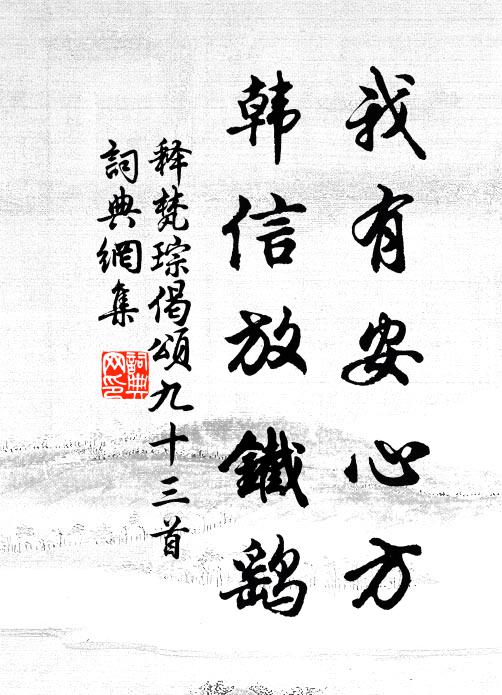 我有安心方
韩信放鐵鷂
释梵琮偈頌九十三首
詞典網集
詞典网印